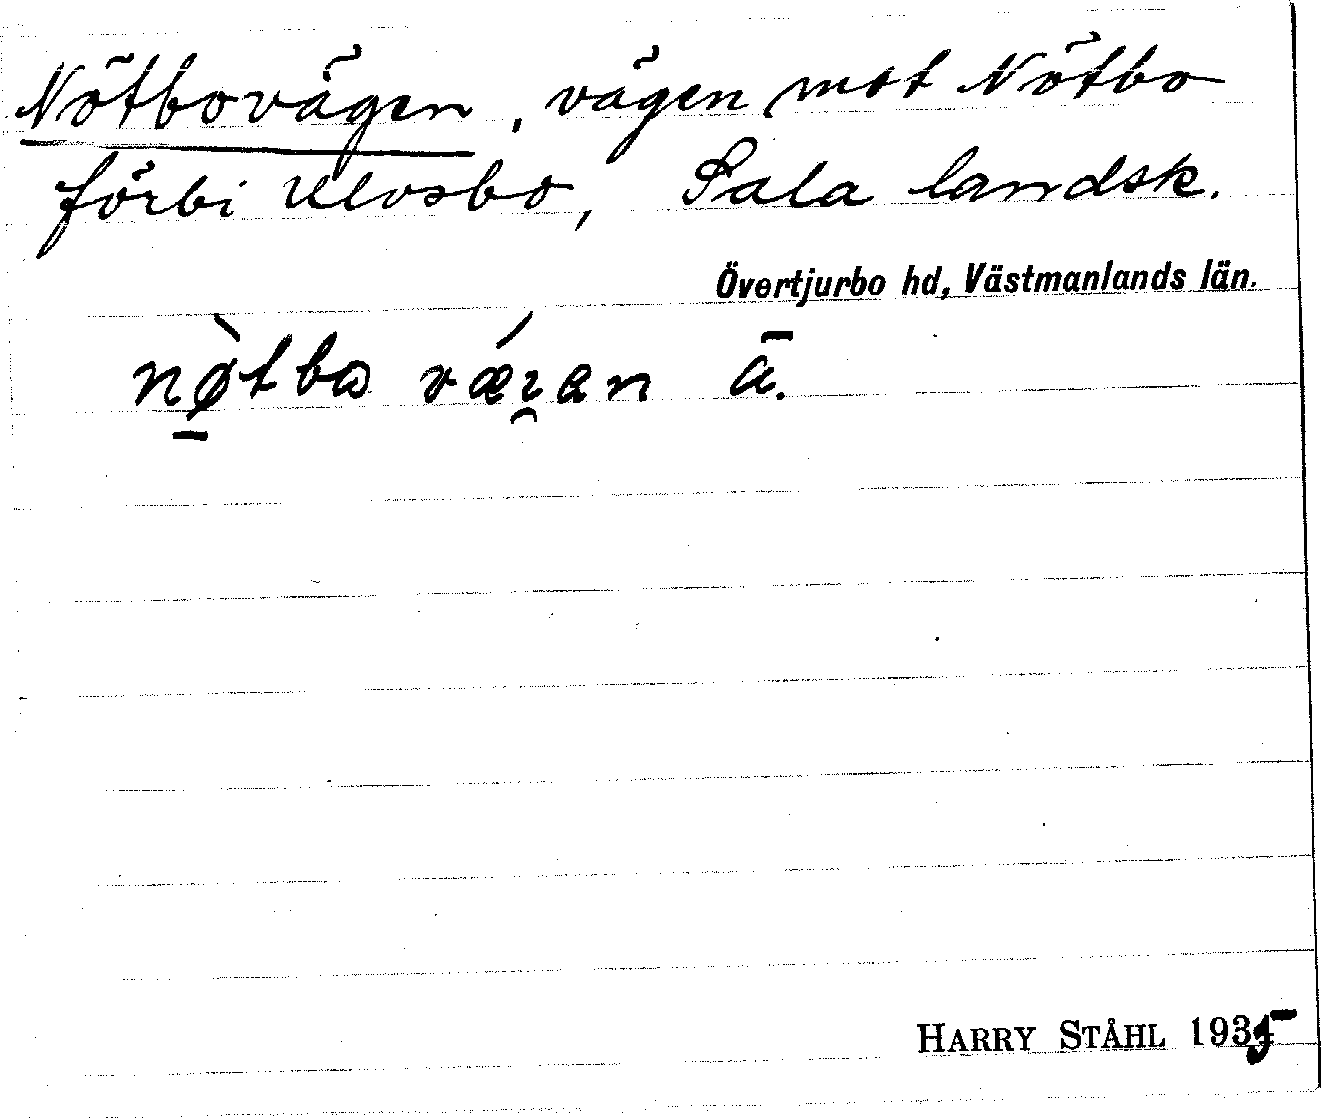 Nötbovägen, vägen mot Nötbo
förbi Ulvsbo, Sala landsk.
Övertjurbo hd, Västmanlands län.
nø̱̀tbɷ væ̂́ɀan ā.
HARRY STÅHL 1935